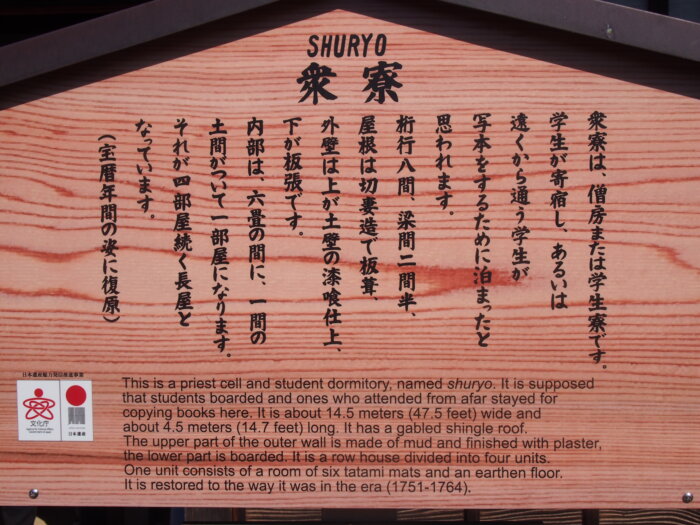 SHURYO
衆寮
衆寮は、僧房または学生寮です。
学生が寄宿し、あるいは
遠くから通う学生が
写本をするために泊まったと
思われます。
桁行八間、梁間二間半、
屋根は切妻造で板葺、
外壁は上が土壁の漆喰仕上、
下が板張です。
内部は、六畳の間に、一間の
土間がついて一部屋になります。
それが四部屋続く長屋と
なっています。
（宝暦年間の姿に復原）
This is a priest cell and student dormitory, named shuryo. It is supposed
that students boarded and ones who attended from afar stayed for
copying books here. It is about 14.5 meters (47.5 feet) wide and
about 4.5 meters (14.7 feet) long. It has a gabled shingle roof.
The upper part of the outer wall is made of mud and finished with plaster,
the lower part is boarded. It is a row house divided into four units.
One unit consists of a room of six tatami mats and an earthen floor.
It is restored to the way it was in the era (1751-1764).
日本遺産魅力発信推進事業
文化庁
日本遺産